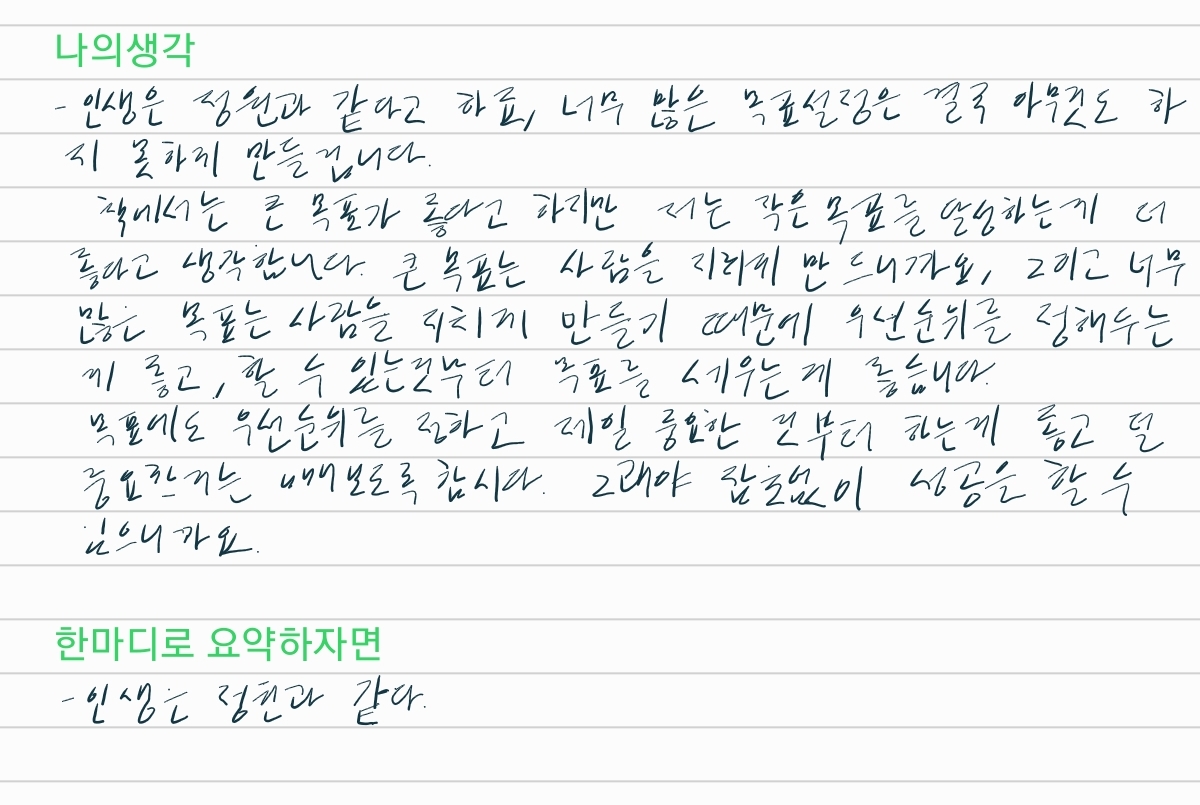 나의생각
- 인생은 정원과 같다고 하죠, 너무 많은 목표설정은 결국 아무것도 하
지 못하게 만들겁니다.
책에서는 큰 목표가 좋다고 하지만 저는 작은 목표를 달성하는게 더
좋다고 생각합니다. 큰 목표는 사람을 지치게 만드니까요, 그리고 너무
많은 목표는 사람을 지치게 만들기 때문에 우선순위를 정해두는
게 좋고, 할 수 있는것부터 목표를 세우는게 좋습니다.
목표에도 우선순위를 정하고 제일 중요한 것부터 하는게 좋고 덜
중요한거는 빼보도록 합시다. 그래야 잡초없이 성공을 할 수
있으니까요.
한마디로 요약하자면
- 인생은 정원과 같다.